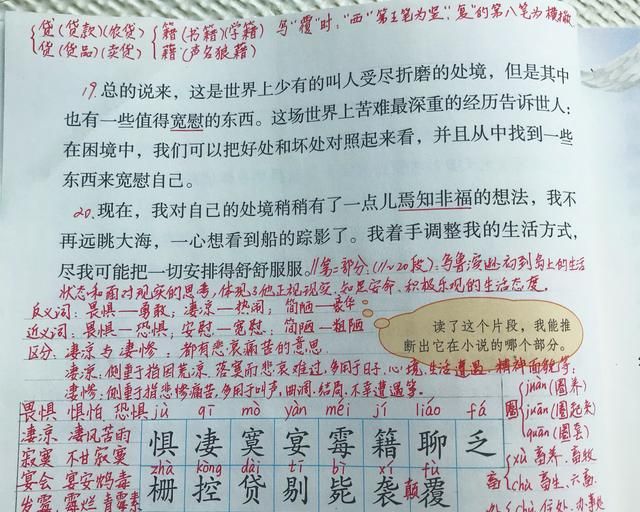 贷(贷款)(农贷) 籍(书籍)(学籍) 写"覆"时,"西"第五笔为竖,"复"的第八笔为横撇
货(货品)(卖货) 藉(声名狼藉)
19.总的说来，这是世界上少有的叫人受尽折磨的处境，但是其中
也有一些值得宽慰的东西。这场世界上苦难最深重的经历告诉世人：
在困境中，我们可以把好处和坏处对照起来看，并且从中找到一些
东西来宽慰自己。
20.现在，我对自己的处境稍稍有了一点儿焉知非福的想法，我不
再远眺大海，一心想看到船的踪影了。我着手调整我的生活方式，
尽我可能把一切安排得舒舒服服。//第二部分:(11~20段):鲁滨逊初到岛上的生活
状态和面对现实的思考,体现了他正视现实、知足安命、积极乐观的生活态度。
反义词: 畏惧—勇敢; 凄凉—热闹; 简陋—豪华
近义词: 畏惧—恐惧; 安慰—宽慰; 简陋—粗陋
读了这个片段，我能推
断出它在小说的哪个部分。
区分: 凄凉与凄惨: 都有悲哀痛苦的意思.
凄凉:侧重于指因荒凉、落寞而悲哀难过,多用于日子、心境、生活遭遇、精神面貌等;
凄惨:侧重于指悲惨痛苦,多用于叫声、曲调、结局、不幸遭遇等。
畏惧 惧怕 恐惧 jù qī mò yàn méi jí liáo fá
凄凉 凄风苦雨 惧 凄 寞 宴 霉 籍 聊 乏
寂寞 不甘寂寞 zhà kòng dài tī bì xí fù
宴会 宴安鸩毒 栅 控 贷 剔 毙 袭 颠覆
发霉 霉烂 青霉素
圈 juàn(圈养)
juān(圈起来)
quān(圈套)
畜 xù 畜养、畜牧
chù 畜生、六畜
处 chù 住处、办事处